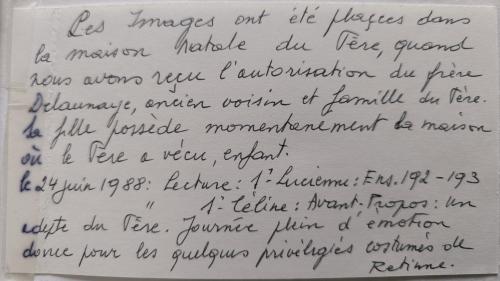 Les Images ont été placées dans
la maison natale du Père, quand
nous avons reçu l'autorisation du frère
Delaunaye, ancien voisin et famille du Père.
Sa fille possède momentanement la maison
où le Père a vécu, enfant.
le 24 juin 1988: Lecture: 1° Lucienne: Ens. 192-193
" 1° Céline: Avant-Propos: un
adepte du Père. Journée plein d'émotion
douce pour les quelques priviligiés costumés de
Retinne.